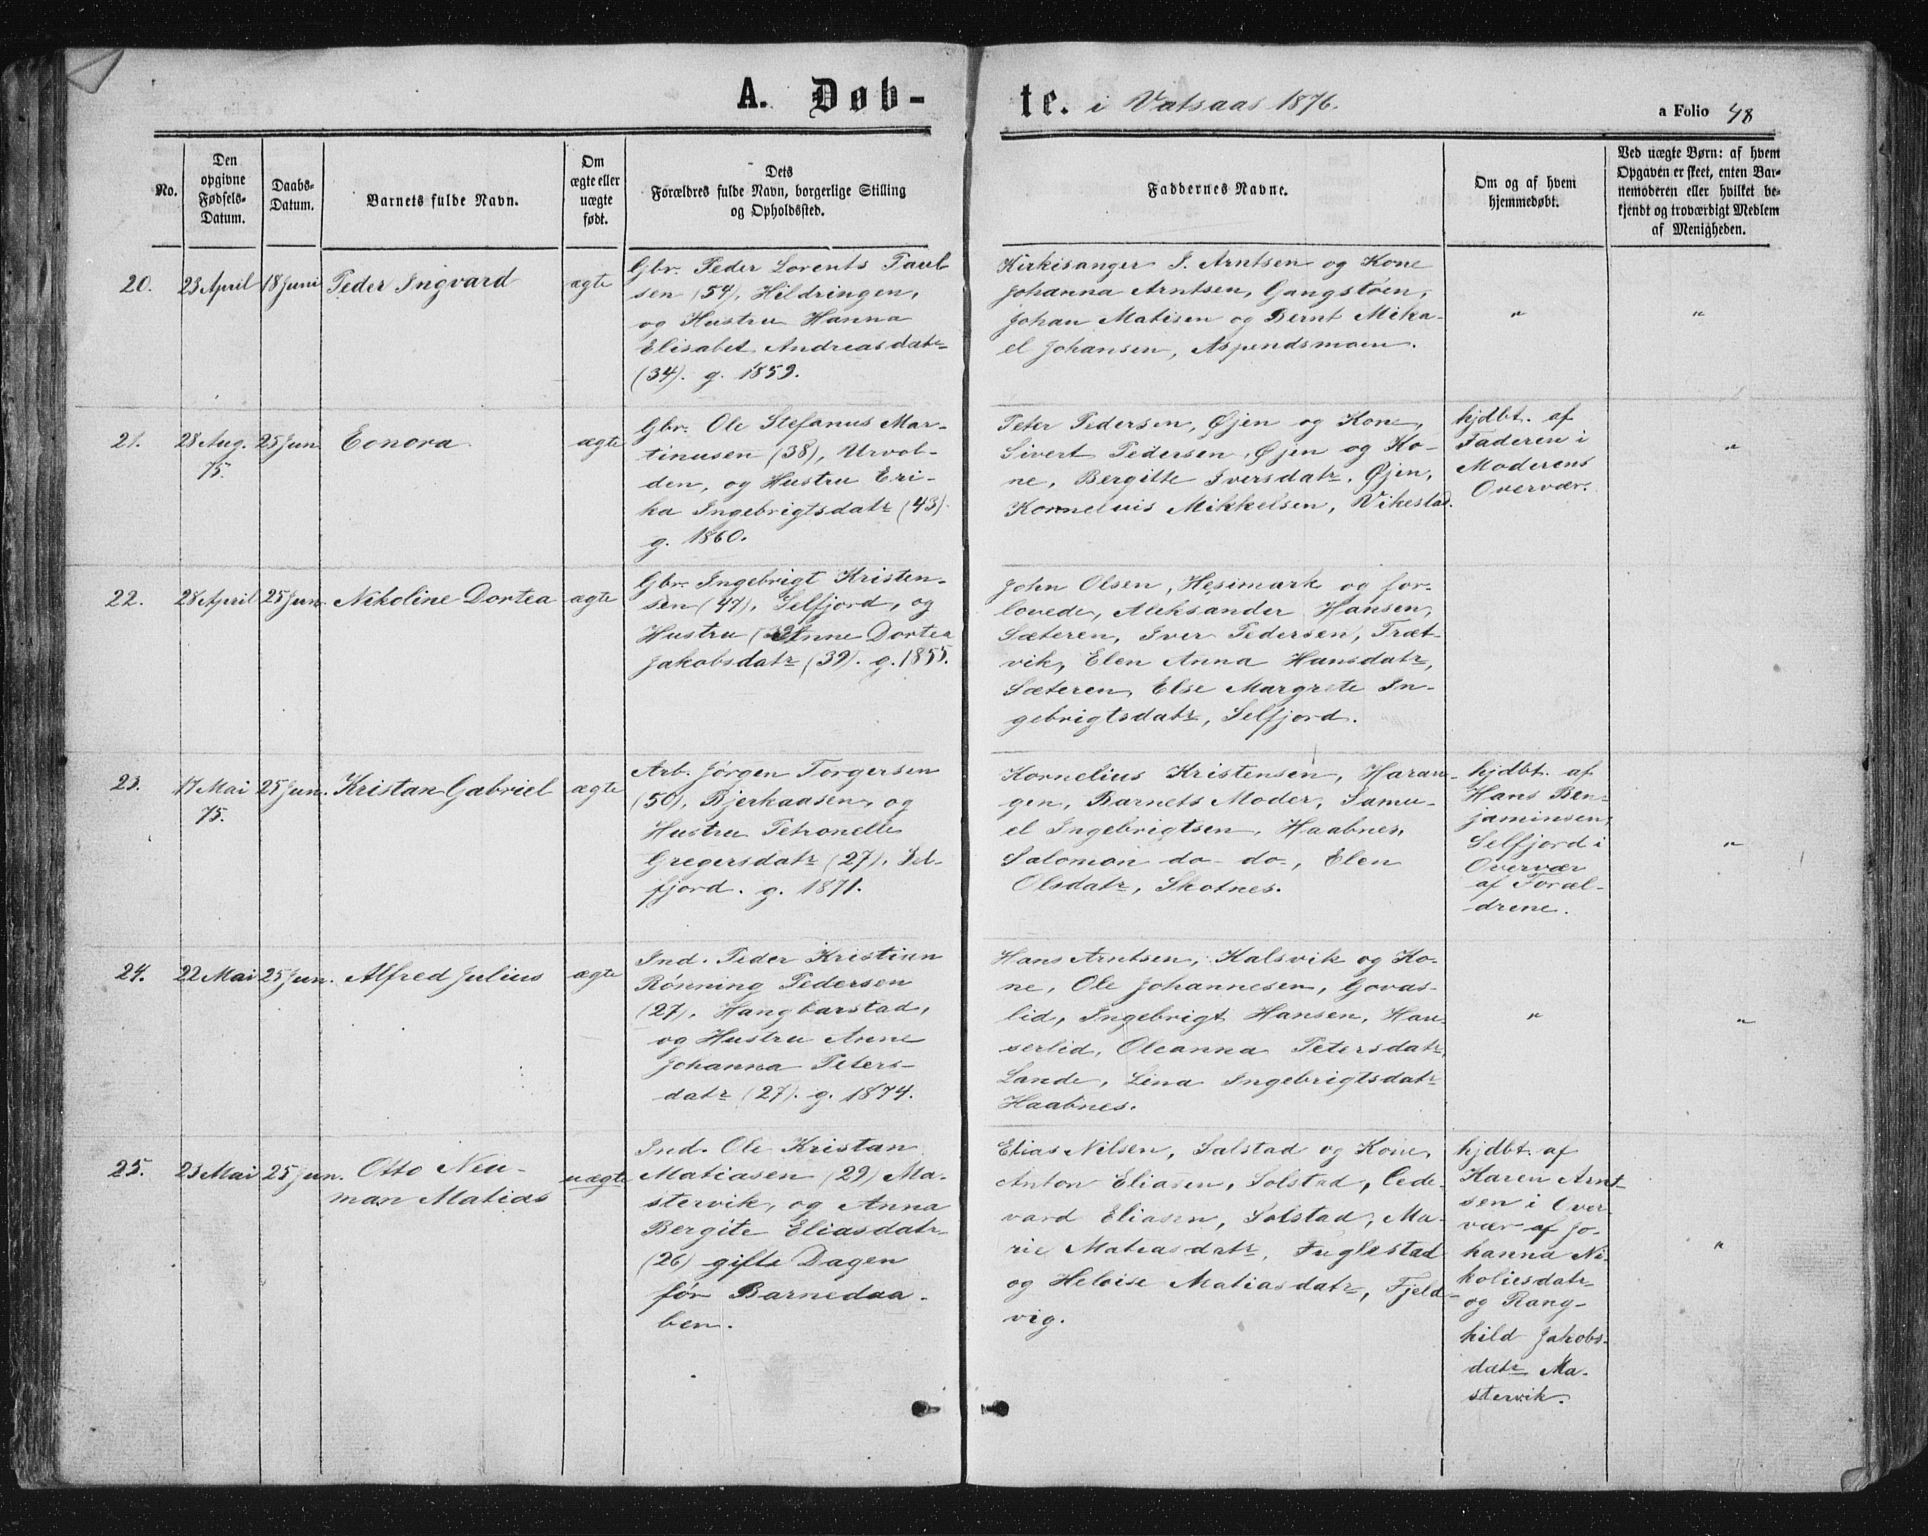 A. Døb-
te. i Vatsaas 1876.
a Folio 48
No.
Den
opgivne
Fødsels-
Datum.
Daabs-
Datum.
Barnets fulde Navn.
Om
ægte eller
uægte
født.
Dets
Forældres fulde Navn, borgerlige Stilling
og Opholdssted.
Faddernes Navne.
Om og af hvem
hjemmedøbt.
Ved uægte Børn: af hvem
Opgaven er skeet, enten Bar-
nemoderen eller hvilket be-
kjendt og troværdigt Medlem
af Menigheden.
20.
23 April
18 Juni
Peder Ingvard
ægte
Gbr. Peder Lorents Paul
sen (54), Hildringen,
og Hustru Hanna
Elisabet Andreasdatr
(34). g. 1859.
Kirkesanger J. Arntsen og Kone
Johanna Arntsen, Gangstøen,
Johan Matisen og Bernt Mika-
el Johansen, Aspendsmoen.
"
"
21.
28 Aug.
75.
25 Jun
Eonora
ægte
Gbr. Ole Stefanus Mar-
tinusen (38), Urvol-
den, og Hustru Eri-
ka Ingebrigtsdatr (43).
g. 1860.
Peter Pedersen, Øjen og Kone,
Sivert Pedersen, Øjen og Ko-
ne, Bergitte Iversdatr, Øjen,
Kornelius Mikkelsen, Vikestad.
hjdbt. af
Faderen i
Moderens
Overvær.
"
22.
28 April
25 Jun.
Nikoline Dortea
ægte
Gbr. Ingebrigt Kristen-
sen (47), Selfjord, og
Hustru Anne Dortea
Jakobsdatr (39). g. 1855.
John Olsen, Hesimark og for-
lovede, Aleksander Hansen,
Sæteren, Iver Pedersen, Træt-
vik, Elen Anna Hansdatr,
Sæteren, Else Margrete In-
gebrigtsdatr, Selfjord.
23.
17 Mai
75.
25 Jun.
Kristan Gabriel
ægte
Arb. Jørgen Torgersen
(50), Bjerkaasen, og
Hustru Petronelle
Gregersdatr (27), Sel-
fjord. g. 1871.
Kornelius Kristensen, Haran-
gen, Barnets Moder, Samu-
el Ingebrigtsen, Haabnes,
Salomon do do, Elen
Olsdatr, Skotnes.
hjdbt. af
Hans Ben-
jaminsen,
Selfjord i
Overvær
af Foræl-
drene.
"
24.
22 Mai
25 Jun.
Alfred Julius
ægte
Ind. Peder Kristian
Rønning Pedersen
(27), Hangbarstad,
og Hustru Anne
Johanna Peters-
datr (27). g. 1874.
Hans Arntsen, Kalsvik og Ko-
ne, Ole Johannesen, Govas-
lid, Ingebrigt Hansen, Hau-
serlid, Oleanna Petersdatr,
Lande, Lina Ingebrigtsdatr
Haabnes.
"
"
25.
23 Mai
25 Jun.
Otto Neu-
man Matias
uægte
Ind. Ole Kristan
Matiasen (29) Ma-
stervik, og Anna
Bergite Eliasdatr
(26) gifte Dagen
før Barnedaa-
ben.
Elias Nilsen, Salstad og Kone,
Anton Eliasen, Solstad, Ede-
vard Eliasen, Solstad, Ma-
rie Matiasdatr, Fuglestad
og Heloise Matiasdatr, Fjeld-
vig.
hjdbt. af
Karen Arnt-
sen i Over-
vær af Jo-
hanna Ni-
koliesdatr
og Rang-
hild Jakobs-
datr Ma-
stervik.
"